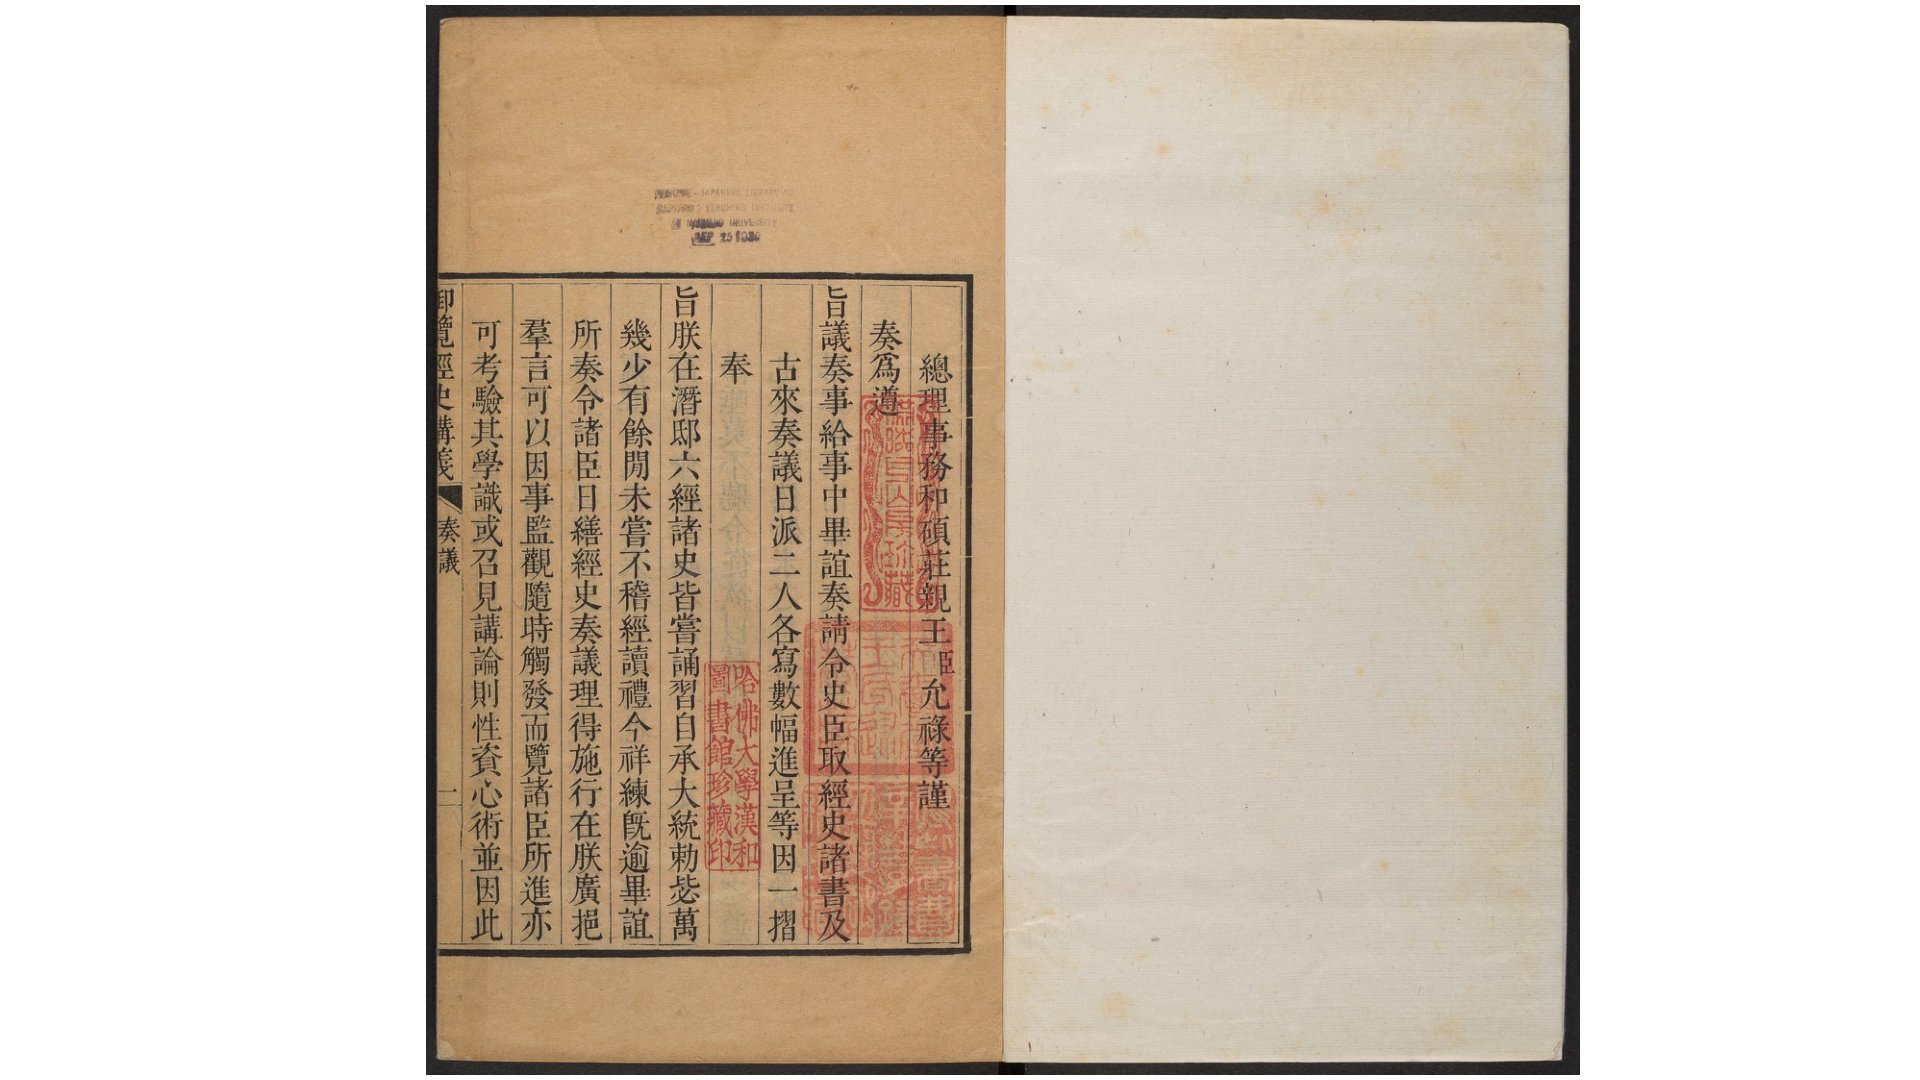 JAPANESE LIBRARY
HARVARD-YENCHING INSTITUTE
HARVARD UNIVERSITY
SEP 25
總理事務和碩莊親王臣允祿等謹
奏爲遵
旨議奏事給事中畢誼奏請令史臣取經史諸書及
古來奏議日派二人各寫數幅進呈等因一摺
奉
旨朕在潛邸六經諸史皆嘗誦習自承大統勅毖萬
幾少有餘閒未嘗不稽經讀禮今祥練旣逾畢誼
所奏令諸臣日繕經史奏議理得施行在朕廣挹
羣言可以因事監觀隨時觸發而覽諸臣所進亦
可考驗其學識或召見講論則性資心術並因此
御覽經史講義 奏議 一
哈佛大學漢和
圖書館珍藏印